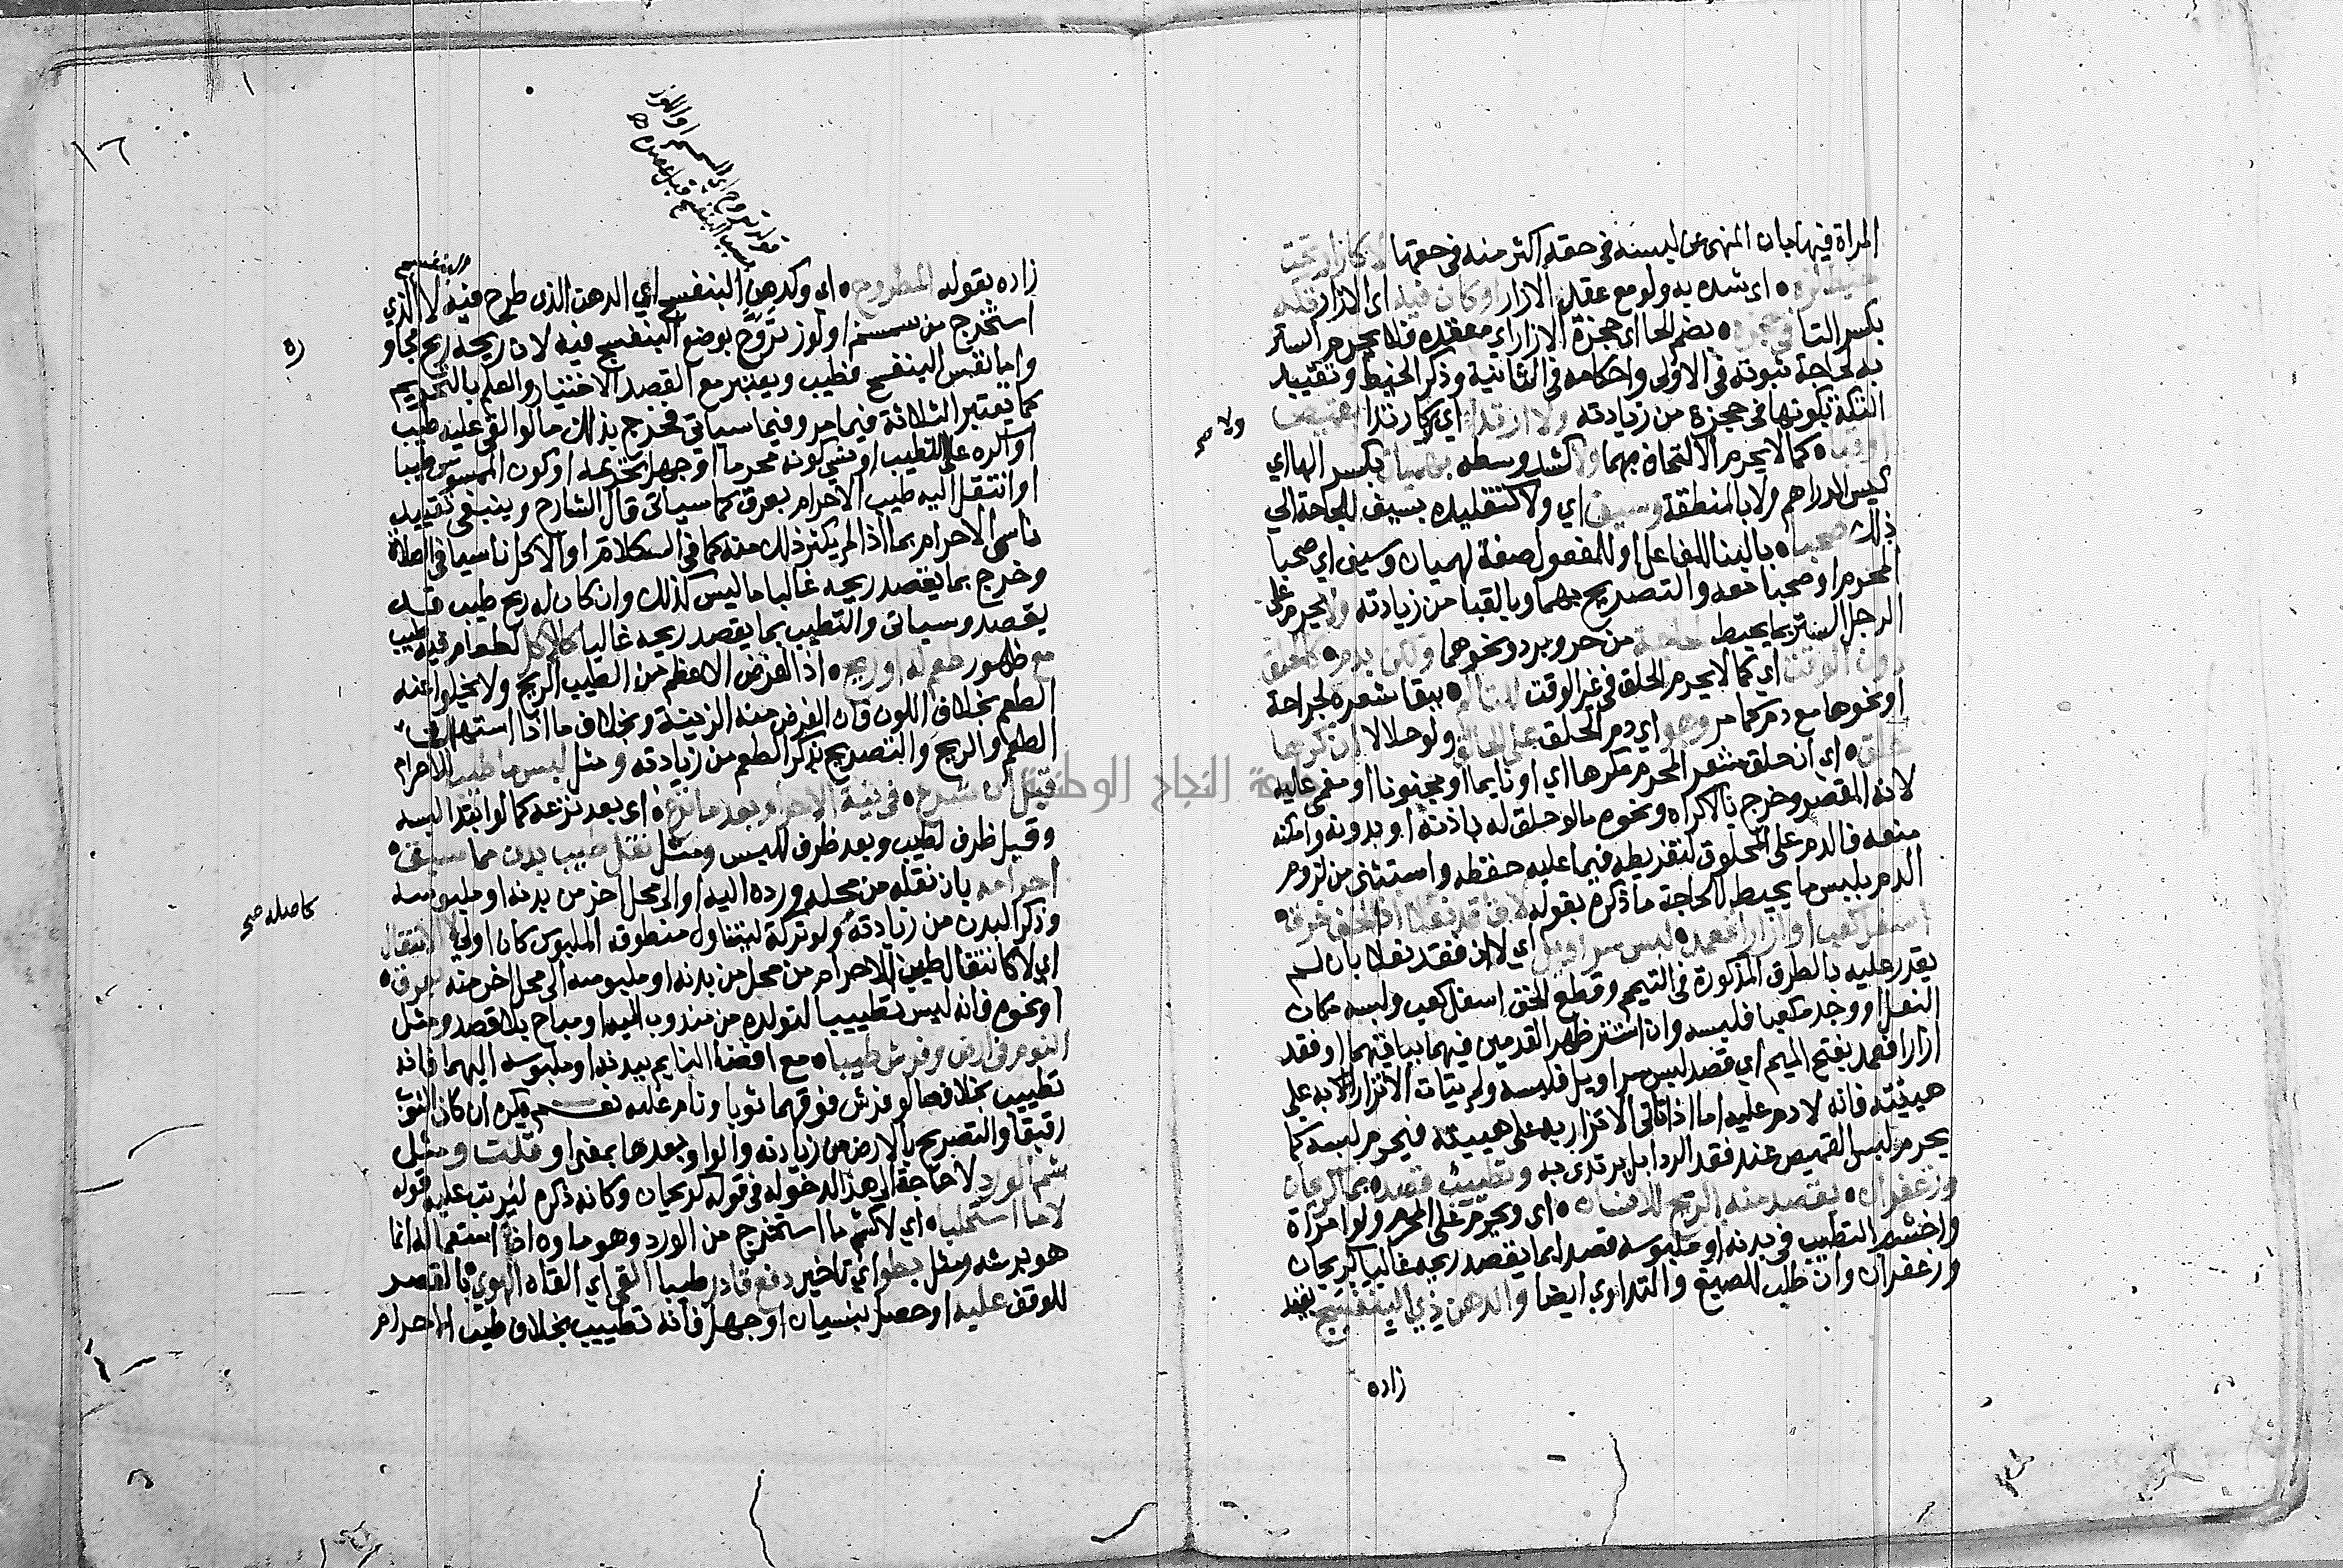 المراة فيها بان المنهى عن لبسه فى حقه اكثر منه فى حقها لا كازار تحت
خيط ازره اى شده به ولو مع عقد الازار او كان فيه اى الازار تكه
بكسر التا فى حجزه بضم الحا اى حجزة الازار اي معقده فلا يحرم الستر
به لحاجة ثبوته فى الاولى واحكامه فى الثانية وذكر الخيط وتقييد
التكة بكونها فى حجزة من زيادته ولا ارتدا اي كارتدا بقميص
او قبا كما لا يحرم الالتحاف بهما ولا كشد وسطه بهميان بكسر الها اي
كيس الدراهم ولا بالمنطقة وسيف اي ولا كتقليده بسيف للحاجة الى
ذلك صحبا بالبنا للفاعل او للمفعول صفة لهميان وسيف اي صحبا
المحرم او صحبا معه والتصريح بهما وبالقبا من زيادته ولا يحرم على
الرجل الستر بما يحيط لحاجة من حر وبرد ونحوهما ولكن بدم كالحلق
دون الوقت اي كما لا يحرم الحلق فى غير الوقت للتالم ببقا شعره لجراحة
او نحوها مع دم كما مر وهو اي دم الحلق على الحالق ولو حلالا ان كرها
حلق اى ان حلق شعر المحرم مكرها اي او نايما او مجنونا او مغمى عليه
لانه المقصر وخرج بالاكراه ونحوه ما لو حلق له باذنه او بدونه وامكنه
منعه فالدم على المحلوق لتفريطه فيما عليه حفظه واستثنى من لزوم
الدم بلبس ما يحيط للحاجة ما ذكره بقوله لا فاقد نعلا اذا الخف خرق
اسفل كعب او ازارا فعمد لبس سراويل اي لا ان فقد نعلا بان لم
يقدر عليه بالطرق المذكورة فى التيمم وقطع الخف اسفل كعب ولبسه مكان
النعل او وجد مكعبا فلبسه وان استتر ظهر القدمين فيهما بباقيهما او فقد
ازارا فعمد بفتح الميم اي قصد لبس سراويل فلبسه ولم يتات الاتزار به على
هيئته فانه لا دم عليه اما اذا تاتى الاتزار به على هيئته فيحرم لبسه كما
يحرم لبس القميص عند فقد الردا بل يرتدى به وتطييب قصد بما كريحان
وزعفران يقصد منه الريح للانسان اى ويحرم على المحرم ولو امراة
واخشم التطييب فى بدنه او ملبوسه قصدا بما يقصد ريحه غالبا كريحان
وزعفران وان طلب للصبغ والتداوي ايضا والدهن ذي البنفسج بقيد
زاده
ولا صح
زاده بقوله المطروح اى وكدهن البنفسج اي الدهن الذى طرح فيه لا الذي
استخرج من سمسم او لوز تروح بوضع البنفسج فيه لان ريحه ريح مجاو
ره
واما نفس البنفسج فطيب ويعتبر مع القصد الاختيار والعلم بالتحريم
كما تعتبر الثلاثة فيما مر وفيما سياتي فخرج بذلك ما لو القى عليه طيب
او اكره على التطييب او نسي كونه محرما او جهل تحريمه او كون الممسوس طيبا
او انتقل اليه طيب الاحرام بعرق كما سياتى قال الشارح وينبغى تقييد
ناسى الاحرام بما اذا لم يكثر ذلك منه كما فى السكلام او الاكل ناسيا فى الصلاة
وخرج بما يقصد ريحه غالبا ما ليس كذلك وان كان له ريح طيب قد
يقصد وسياتى والتطييب بما يقصد ريحه غالبا كالاكل لطعام فيه طيب
مع ظهور طعم له او ريح اذ الغرض الاعظم من الطيب الريح ولا يخلوا عنه
الطعم بخلاف اللون فان الغرض منه الزينة وبخلاف ما اذا استهلك
الطعم والريح والتصريح بذكر الطعم من زيادته ومثل لبس ما طيب للاحرام
قبل ان شرع فى نية الاحرام بعد ما نزع اى بعد نزعه كما لو ابتدا لبسه
وقبل ظرف لطيب وبعد ظرف للبس ومثل نقل طيب بدن مما سبق
احرامه بان نقله من محله ورده اليه او الى محل اخر من بدنه او ملبوسه
وذكر البدن من زيادته ولو تركه ليتناول منطوقه الملبوس كان اولى لا انتقال
كاصله صح
اي لا كانتقال طيب الاحرام من محل من بدنه او ملبوسه الى محل اخر منه بعرق
او نحوه فانه ليس تطييبا لتولده من مندوب اليه او مباح بلا قصد ومثل
النوم فى ارض وفرش طيبا مع افضا النايم ببدنه او ملبوسه اليهما فانه
تطييب بخلاف ما لو فرش فوقهما ثوبا ونام عليه نعم يكره ان كان الثوب
رقيقا والتصريح بالارض من زيادته والواو بعدها بمعنى او قلت ومثل
شم الورد لا حاجة الى هذا لدخوله فى قوله كريحان وكانه ذكره ليرتب عليه قوله
لا ما استحلبا اي لا كشم ما استخرج من الورد وهو ماوه اذ استعماله انما
هو برشه ومثل بطو اي تاخير دفع قادر طيبا القى اي القاه الهوي بالقصد
للوقف عليه او حصل بنسيان او جهل فانه تطييب بخلاف طيب الاحرام
١٦
جامعة النجاح الوطنية